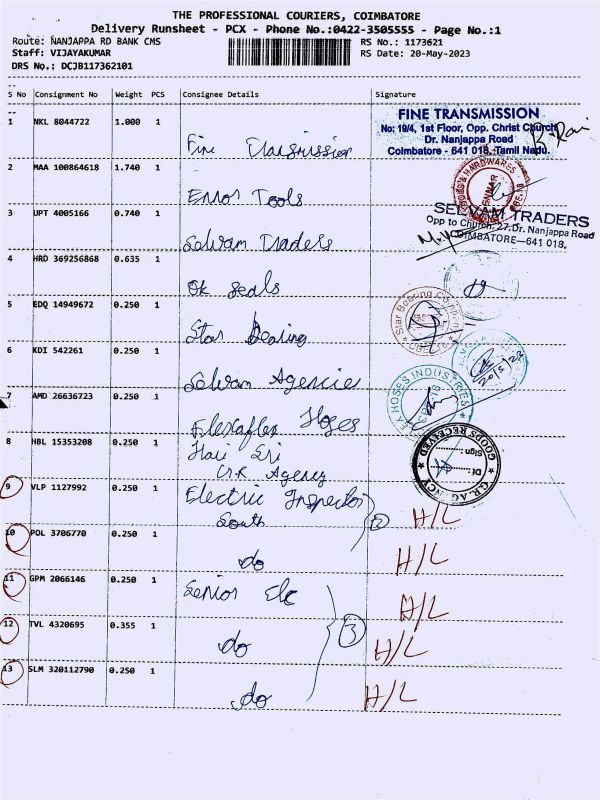 THE PROFESSIONAL COURIERS, COIMBATORE
Delivery Runsheet - PCX - Phone No.:0422-3505555 - Page No.:1
Route: NANJAPPA RD BANK CMS
RS No.: 1173621
Staff: VIJAYAKUMAR
RS Date: 20-May-2023
DRS No.: DCJB117362101
S No Consignment No Weight PCS Consignee Details Signature
1 NKL 8044722 1.000 1
Fine Transmission
FINE TRANSMISSION
No: 19/4, 1st Floor, Opp. Christ Church
Dr. Nanjappa Road
Coimbatore - 641 018. Tamil Nadu.
2 MAA 100864618 1.740 1
Error Tools
3 UPT 4005166 0.740 1
Selvam Traders
SELVAM TRADERS
Opp to Church, 27, Dr. Nanjappa Road
COIMBATORE-641 018.
4 HRD 369256868 0.635 1
Ok Seals
5 EDQ 14949672 0.250 1
Star Bearing
Star Bearing
6 KDI 542261 0.250 1
Selvam Agencie
20/5/23
7 AMD 26636723 0.250 1
Flexaflex Hoses
HOSES INDUSTRIES
8 HBL 15353208 0.250 1
Hari Sri
G.R Agency
GOODS RECEIVED
Sign
Dt:
G.R. AGENCY
9 VLP 1127992 0.250 1
Electric Inspector
South
2
H/L
10 POL 3706770 0.250 1
do
H/L
11 GPM 2066146 0.250 1
Senior Ele
H/L
12 TVL 4320695 0.355 1
do
3
H/L
13 SLM 320112790 0.250 1
do
H/L